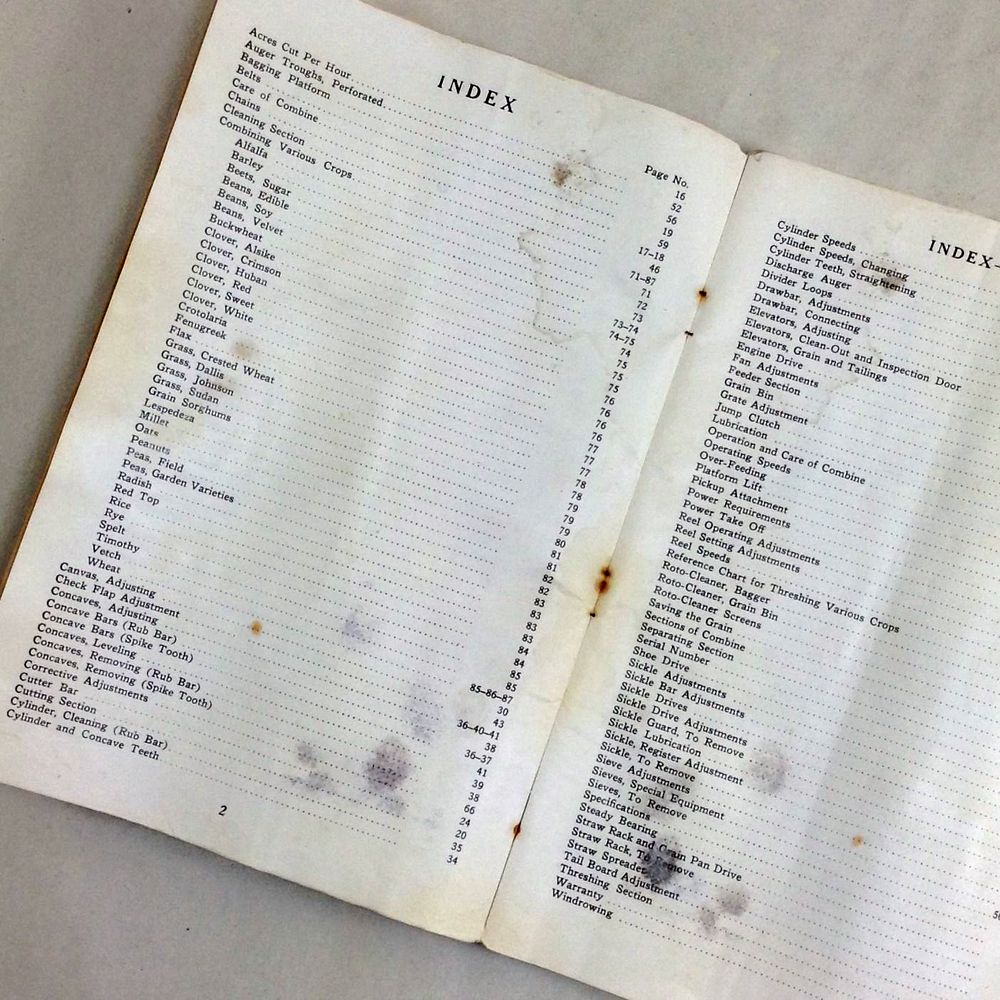 INDEX
Page No.
Acres Cut Per Hour
Auger Troughs, Perforated
Bagging Platform
Belts
Care of Combine
Chains
Cleaning Section
Combining Various Crops
Alfalfa
Barley
Beets, Sugar
Beans, Edible
Beans, Soy
Beans, Velvet
Buckwheat
Clover, Alsike
Clover, Crimson
Clover, Huban
Clover, Red
Clover, Sweet
Clover, White
Crotolaria
Fenugreek
Flax
Grass, Crested Wheat
Grass, Dallis
Grass, Johnson
Grass, Sudan
Grain Sorghums
Lespedeza
Millet
Oats
Peanuts
Peas, Field
Peas, Garden Varieties
Radish
Red Top
Rice
Rye
Spelt
Timothy
Vetch
Wheat
Canvas, Adjusting
Check Flap Adjustment
Concaves, Adjusting
Concave Bars (Rub Bar)
Concave Bars (Spike Tooth)
Concaves, Leveling
Concaves, Removing (Rub Bar)
Concaves, Removing (Spike Tooth)
Corrective Adjustments
Cutter Bar
Cutting Section
Cylinder, Cleaning (Rub Bar)
Cylinder and Concave Teeth
16
52
56
19
59
17-18
46
71-87
71
72
73
73-74
74-75
74
75
75
75
76
76
76
77
77
77
78
78
79
79
79
80
81
81
82
82
83
83
83
83
84
84
85
85
85-86-87
30
43
36-40-41
38
36-37
41
39
38
66
24
20
35
34
2
INDEX—
Cylinder Speeds
Cylinder Speeds, Changing
Cylinder Teeth, Straightening
Discharge Auger
Divider Loops
Drawbar, Adjustments
Drawbar, Connecting
Elevators, Adjusting
Elevators, Clean-Out and Inspection Door
Elevators, Grain and Tailings
Engine Drive
Fan Adjustments
Feeder Section
Grain Bin
Grate Adjustment
Jump Clutch
Lubrication
Operation and Care of Combine
Operating Speeds
Over-Feeding
Platform Lift
Pickup Attachment
Power Requirements
Power Take Off
Reel Operating Adjustments
Reel Setting Adjustments
Reel Speeds
Reference Chart for Threshing Various Crops
Roto-Cleaner, Bagger
Roto-Cleaner, Grain Bin
Roto-Cleaner Screens
Saving the Grain
Sections of Combine
Separating Section
Serial Number
Shoe Drive
Sickle Adjustments
Sickle Bar Adjustments
Sickle Drives
Sickle Drive Adjustments
Sickle Guard, To Remove
Sickle Lubrication
Sickle, Register Adjustment
Sickle, To Remove
Sieve Adjustments
Sieves, Special Equipment
Sieves, To Remove
Specifications
Steady Bearing
Straw Rack and Grain Pan Drive
Straw Rack, To Remove
Straw Spreader
Tail Board Adjustment
Threshing Section
Warranty
Windrowing